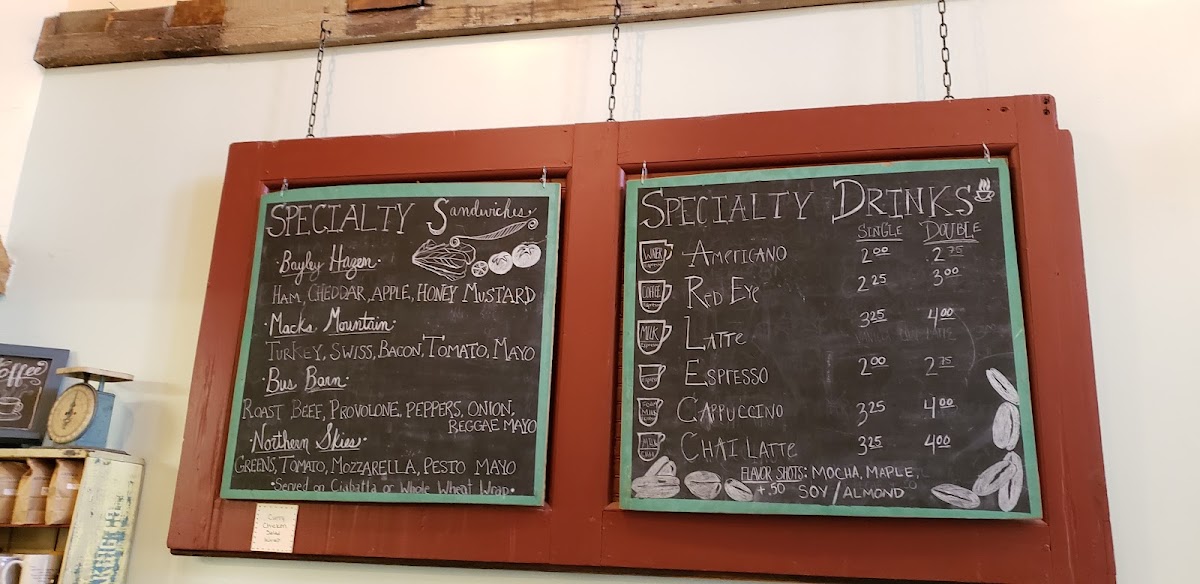 SPECIALTY Sandwiches
·Bayley Hazen·
HAM, CHEDDAR, APPLE, HONEY MUSTARD
·Macks Mountain·
TURKEY, SWISS, BACON, TOMATO, MAYO
·Bus Barn·
ROAST BEEF, PROVOLONE, PEPPERS, ONION,
REGGAE MAYO
·Northern Skies·
GREENS, TOMATO, MOZZARELLA, PESTO MAYO
·Served on Ciabatta or Whole Wheat Wrap·
Curry
Chicken
Salad
Wrap
SPECIALTY DRINKS
SINGLE DOUBLE
WATER
AMERICANO 2.00 2.75
COFFEE
RED EYE 2.25 3.00
MILK
LATTE 3.25 4.00
ESPRESSO 2.00 2.75
FOAM
MILK
CAPPUCCINO 3.25 4.00
MILK
CHAI LATTE 3.25 4.00
FLAVOR SHOTS: MOCHA, MAPLE,
+.50 SOY/ALMOND
Coffee